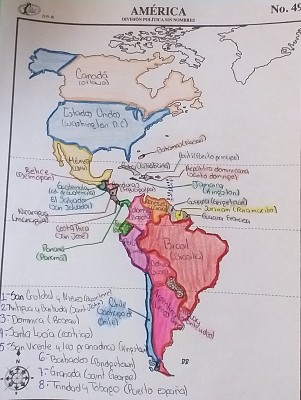 AMÉRICA
No. 49
DIVISIÓN POLÍTICA SIN NOMBRES
Canadá
(Ottawa)
Estados Unidos
(Washington D.C)
México
Belice
(Belmopan)
Guatemala
El Salvador
(San Salvador)
Nicaragua
(managua)
Costa Rica
(San José)
Panamá
(Panamá)
Haití (Puerto principe)
República dominicana
(Santo domingo)
Jamaica
(Kingston)
Surinam (Paramaribo)
Guyana Francesa
Brasil
(Brasilia)
Chile
1-San Cristobal y Nieves
2-Antigua y Barbuda (Saint John)
3-Dominica (Roseau)
4-Santa Lucía (Castries)
5-San Vicente y las granadinas (Kingstown)
6-Barbados (Bridgetown)
7-Granada (Saint George)
8-Trinidad y Tobago (Puerto España)